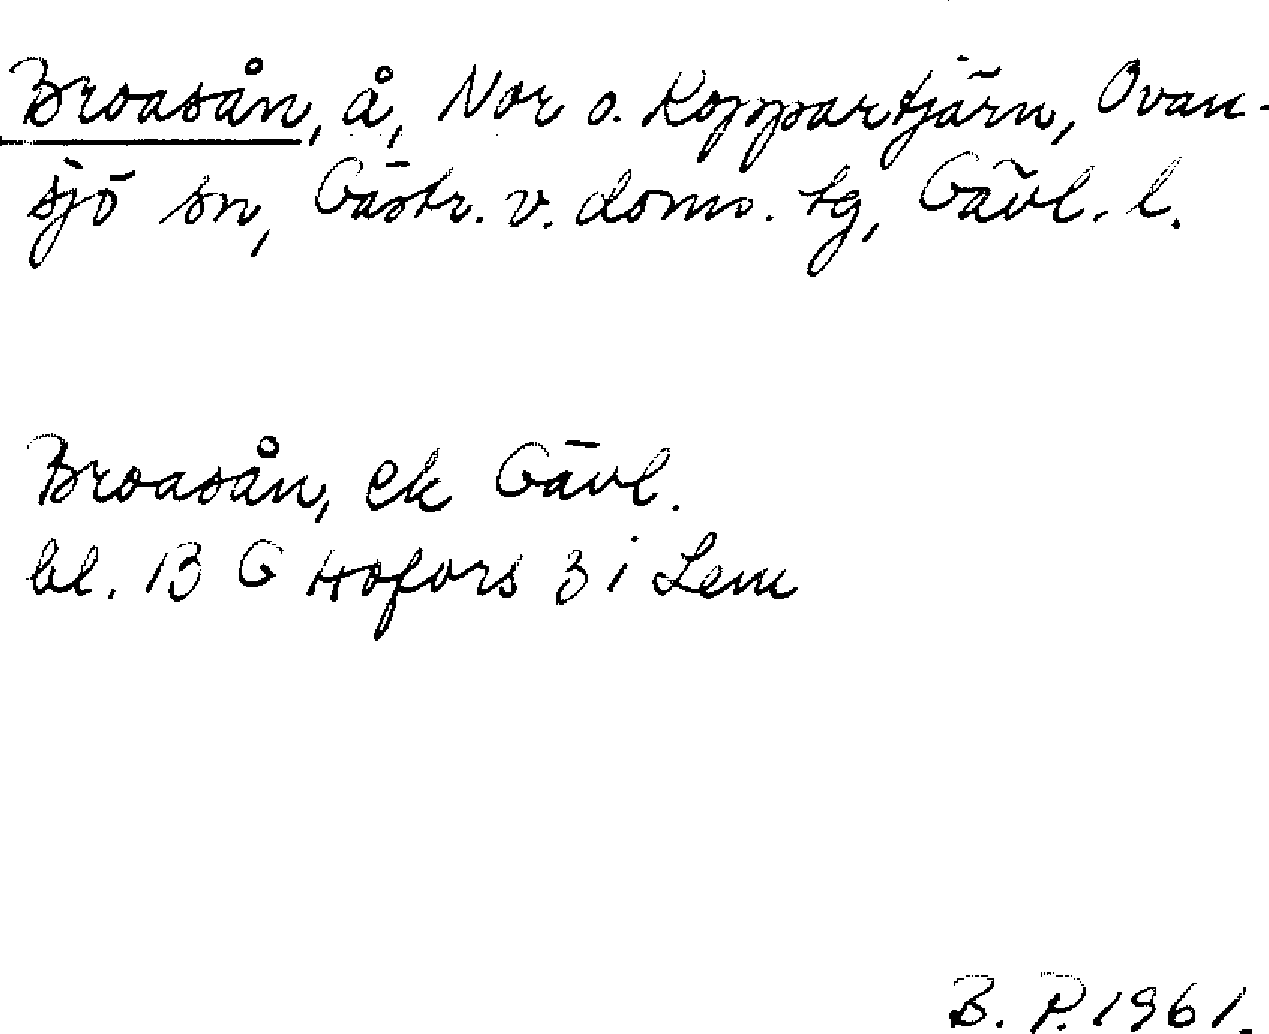 Broasån, å, Nor o. Koppartjärn, Ovan-
sjö sn, Gästr. v. doms. tg, Gävl. l.
Broasån, ek Gävl.
bl. 13 G Hofors 3 i Lem
B. P. 1961.